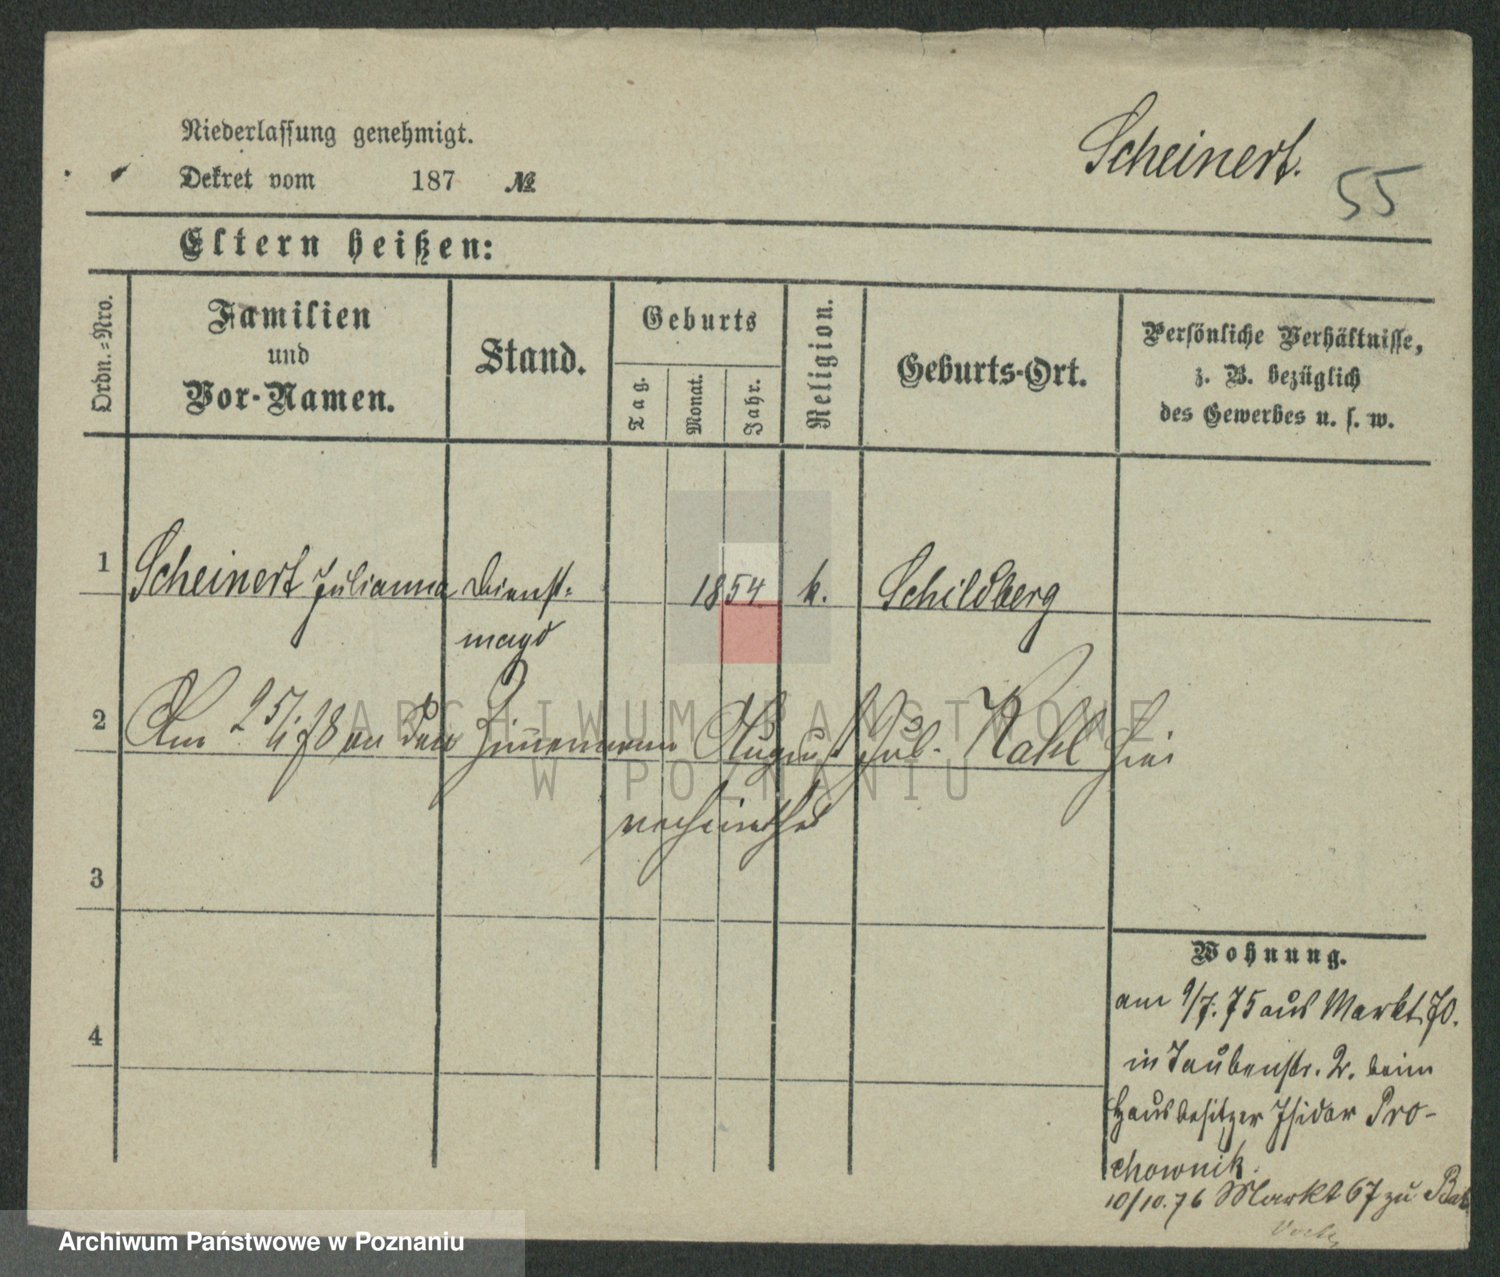 Niederlassung genehmigt.
Dekret vom 187 №
Scheinert.
55
Eltern heißen:
Ordn.-Nro.
Familien
und
Vor-Namen.
Stand.
Geburts
Tag.
Monat.
Jahr.
Religion.
Geburts-Ort.
Persönliche Verhältnisse,
z. B. bezüglich
des Gewerbes u. s. w.
1 Scheinert Julianna Dienst- 1854 k. Schildberg
magd
2 Am 25/ 78 an den August Kahl hier
verheirathet
3
4
ARCHIWUM PAŃSTWOWE
W POZNANIU
Wohnung.
am 9/7. 75 aus Markt 70.
in Taubenstr. 2. beim
Hausbesitzer Isidor Pro-
chownik.
10/10. 76 Markt 67 zu
Archiwum Państwowe w Poznaniu